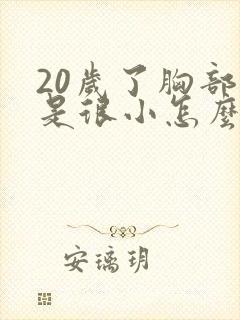 20歲了胸部
是很小怎麼
安璃玥